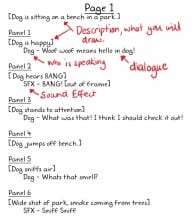 Page 1
[Dog is sitting on a bench in a park.]
Description, what you will draw.
Panel 1
[Dog is happy]
Dog - Woof woof means hello in dog!
who is speaking
dialogue
Panel 2
[Dog hears BANG]
SFX - BANG! [out of frame]
Sound Effect
Panel 3
[Dog stands to attention]
Dog - What was that! I think I should check it out!
Panel 4
[Dog jumps off bench.]
Panel 5
[Dog sniffs air]
Dog - Whats that smell?
Panel 6
[Wide shot of park, smoke coming from trees]
SFX - Sniff Sniff